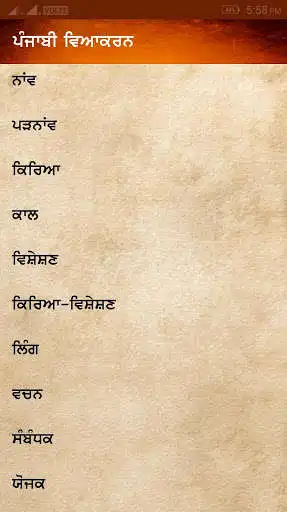 VOLTE 5:58 PM
ਪੰਜਾਬੀ ਵਿਆਕਰਨ
ਨਾਂਵ
ਪੜਨਾਂਵ
ਕਿਰਿਆ
ਕਾਲ
ਵਿਸ਼ੇਸ਼ਣ
ਕਿਰਿਆ-ਵਿਸ਼ੇਸ਼ਣ
ਲਿੰਗ
ਵਚਨ
ਸੰਬੰਧਕ
ਯੋਜਕ